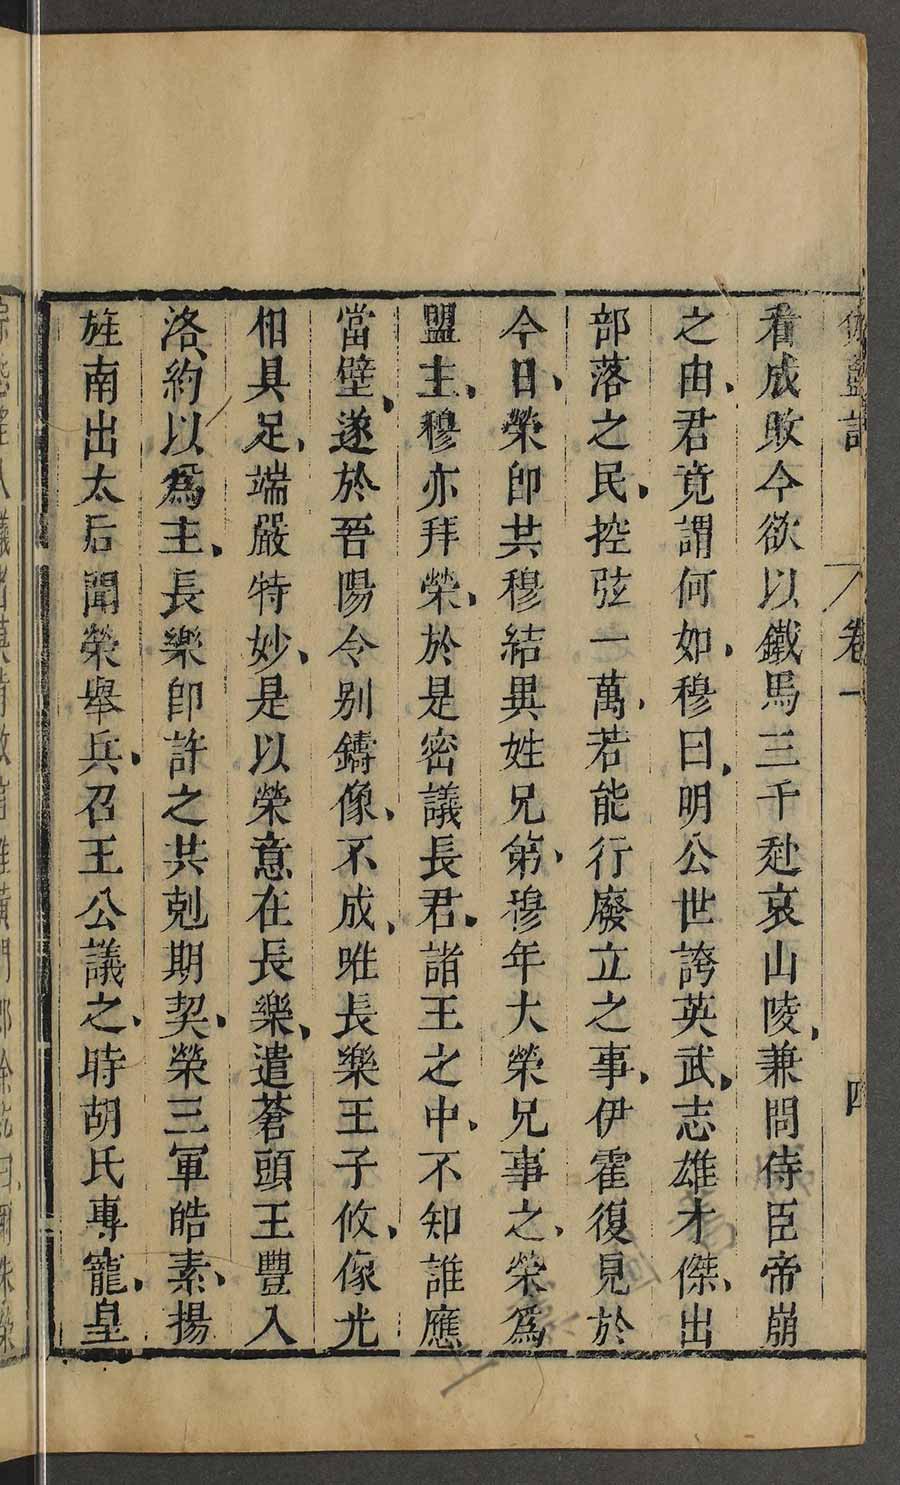 伽藍記 卷一 四
看成敗今欲以鐵馬三千赴哀山陵、兼問侍臣帝崩
之由、君竟謂何如、穆曰、明公世誇英武、志雄才傑、出
部落之民、控弦一萬、若能行廢立之事、伊霍復見於
今日、榮卽共穆結異姓兄第、穆年大榮兄事之、榮爲
盟主、穆亦拜榮、於是密議長君、諸王之中、不知誰應
當壁、遂於吾陽令别鑄像、不成、唯長樂王子攸、像光
相具足、端嚴特妙、是以榮意在長樂、遣蒼頭王豐入
洛、約以爲主、長樂卽許之共剋期契、榮三軍皓素、揚
旌南出太后聞榮舉兵、召王公議之、時胡氏專寵、皇